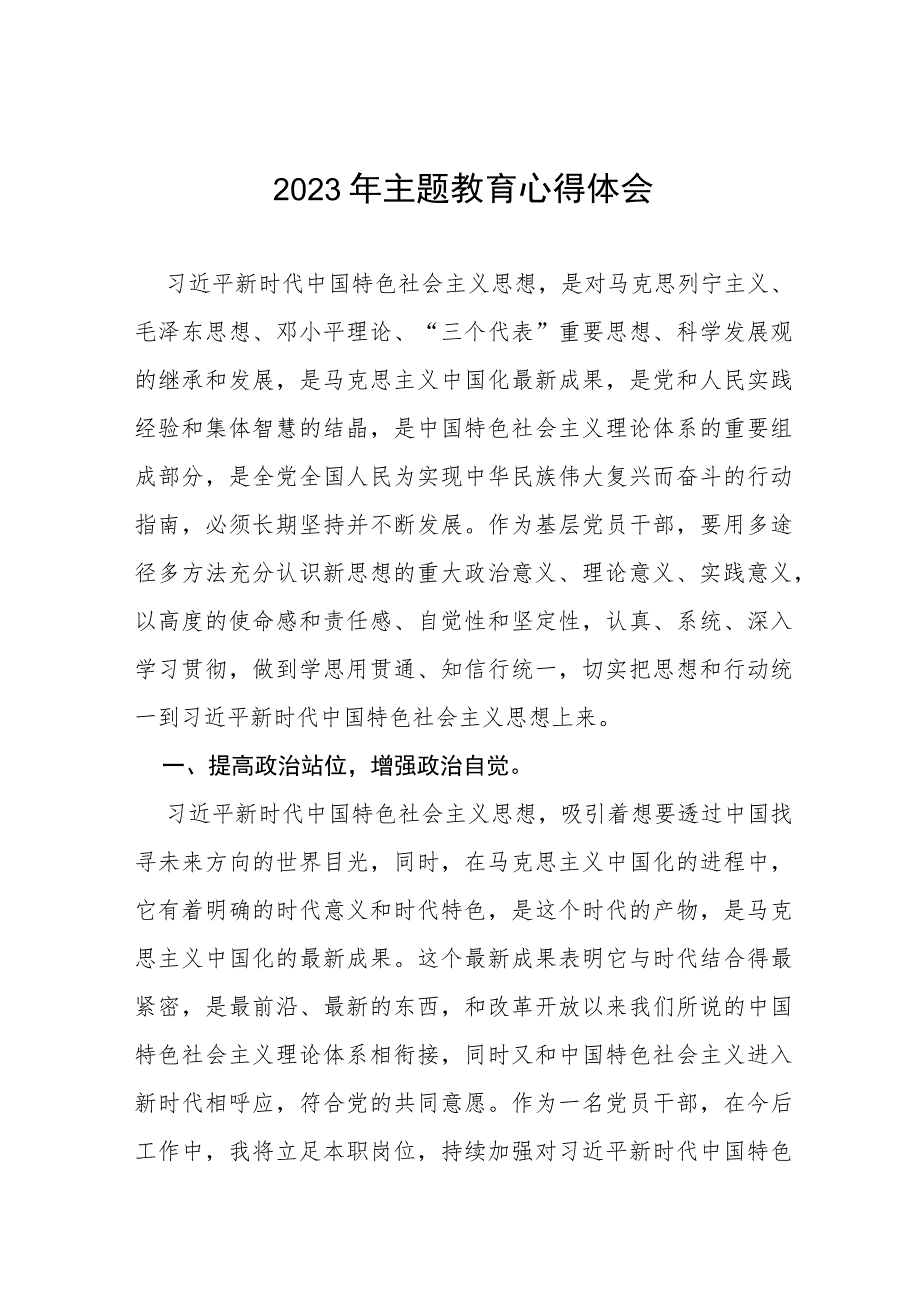 2023年主题教育心得体会
习近平新时代中国特色社会主义思想，是对马克思列宁主义、
毛泽东思想、邓小平理论、“三个代表”重要思想、科学发展观
的继承和发展，是马克思主义中国化最新成果，是党和人民实践
经验和集体智慧的结晶，是中国特色社会主义理论体系的重要组
成部分，是全党全国人民为实现中华民族伟大复兴而奋斗的行动
指南，必须长期坚持并不断发展。作为基层党员干部，要用多途
径多方法充分认识新思想的重大政治意义、理论意义、实践意义，
以高度的使命感和责任感、自觉性和坚定性，认真、系统、深入
学习贯彻，做到学思用贯通、知信行统一，切实把思想和行动统
一到习近平新时代中国特色社会主义思想上来。
一、提高政治站位，增强政治自觉。
习近平新时代中国特色社会主义思想，吸引着想要透过中国找
寻未来方向的世界目光，同时，在马克思主义中国化的进程中，
它有着明确的时代意义和时代特色，是这个时代的产物，是马克
思主义中国化的最新成果。这个最新成果表明它与时代结合得最
紧密，是最前沿、最新的东西，和改革开放以来我们所说的中国
特色社会主义理论体系相衔接，同时又和中国特色社会主义进入
新时代相呼应，符合党的共同意愿。作为一名党员干部，在今后
工作中，我将立足本职岗位，持续加强对习近平新时代中国特色